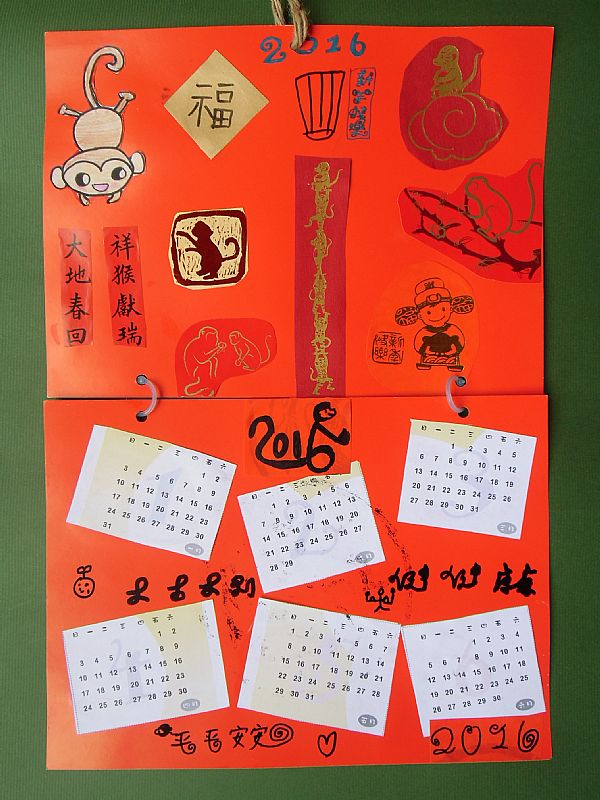 2016
福
新年快樂
大地春回
祥猴獻瑞
新年快樂
2016
日 一 二 三 四 五 六
1 2
3 4 5 6 7 8 9
10 11 12 13 14 15 16
17 18 19 20 21 22 23
24 25 26 27 28 29 30
31
一月
日 一 二 三 四 五 六
1 2 3 4 5 6
7 8 9 10 11 12 13
14 15 16 17 18 19 20
21 22 23 24 25 26 27
28 29
二月
日 一 二 三 四 五 六
1 2 3 4 5
6 7 8 9 10 11 12
13 14 15 16 17 18 19
20 21 22 23 24 25 26
27 28 29 30 31
三月
大吉大利
健健康康
日 一 二 三 四 五 六
1 2
3 4 5 6 7 8 9
10 11 12 13 14 15 16
17 18 19 20 21 22 23
24 25 26 27 28 29 30
四月
日 一 二 三 四 五 六
1 2 3 4 5 6 7
8 9 10 11 12 13 14
15 16 17 18 19 20 21
22 23 24 25 26 27 28
29 30 31
五月
日 一 二 三 四 五 六
1 2 3 4
5 6 7 8 9 10 11
12 13 14 15 16 17 18
19 20 21 22 23 24 25
26 27 28 29 30
六月
平平安安
2016